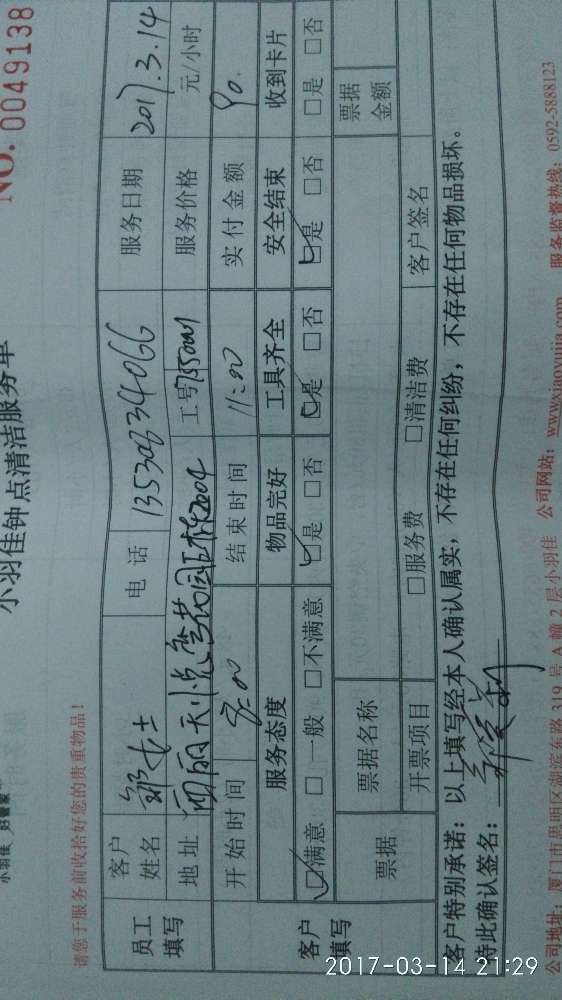 小羽佳 好管家
小羽佳钟点清洁服务单
NO. 0049138
请您于服务前收拾好您的贵重物品!
员工填写 客户姓名 邹女士 电话 13530334066 服务日期 2017.3.14
地址 工号 服务价格 元/小时
客户填写 开始时间 8:00 结束时间 11:00 实付金额 90.
服务态度 物品完好 工具齐全 安全结束 收到卡片
☑满意 □一般 □不满意 ☑是 □否 ☑是 □否 ☑是 □否 □是 □否
票据 票据名称 票据金额
开票项目 □服务费 □清洁费 客户签名
客户特别承诺：以上填写经本人确认属实，不存在任何纠纷，不存在任何物品损坏。
特此确认签名：
公司地址：厦门市思明区湖滨东路 319 号 A 幢 2 层小羽佳 公司网站：www.xiaoyujia.com 服务监督热线：0592-5888123
2017-03-14 21:29